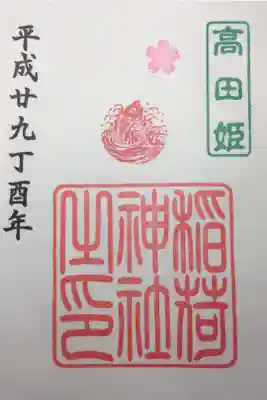 高田姫
稲荷
神社
之印
平成廿九丁酉年